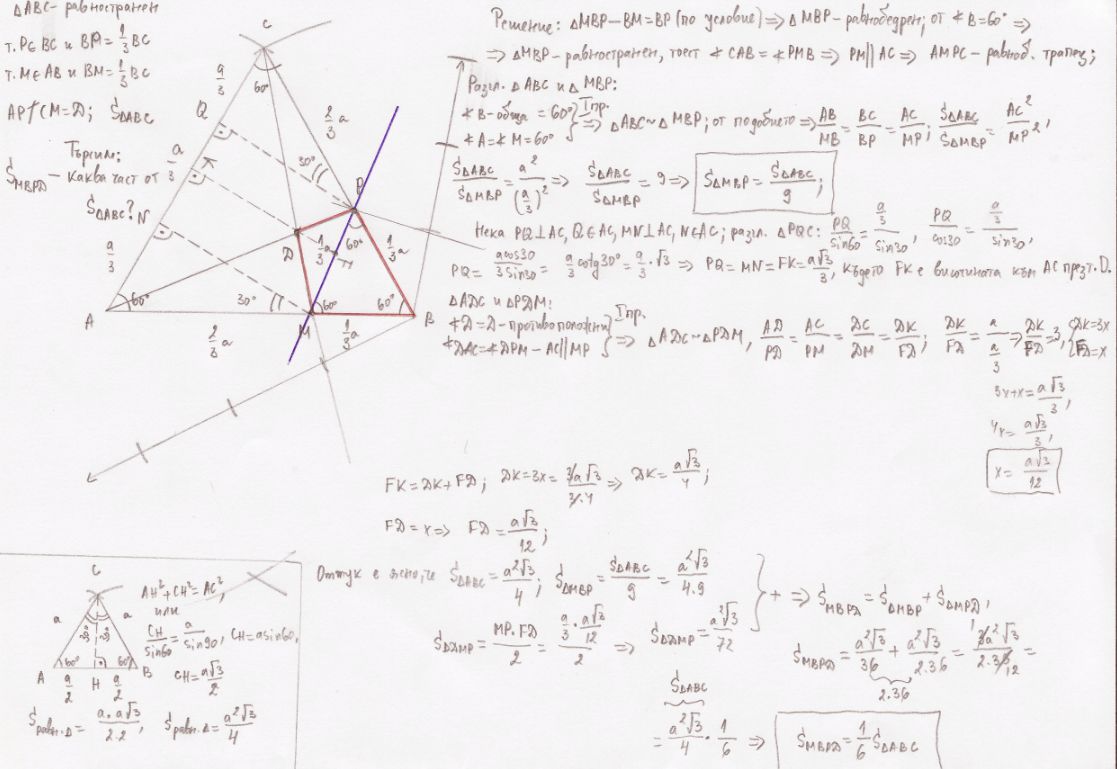 ΔABC - равностранен
т. P∈BC и BP = 1/3 BC
т. M∈AB и BM = 1/3 BC
AP∩CM = D; SΔABC
Търсим:
S MBPD - каква част от
SΔABC?
C
60°
a/3
Q
2/3 a
a/3
30°
P
N
D
1/3 a
60°
1/3 a
a/3
A
60°
30°
M
60°
60°
B
2/3 a
1/3 a
Решение: ΔMBP - BM = BP (по условие) ⇒ ΔMBP - равнобедрен; от ∢B = 60° ⇒
⇒ ΔMBP - равностранен, тоест ∢CAB = ∢PMB ⇒ PM || AC ⇒ AMPC - равноб. трапец;
Разгл. ΔABC и ΔMBP:
∢B - обща = 60°
∢A = ∢M = 60° } I пр. ⇒ ΔABC ~ ΔMBP; от подобието ⇒ AB/MB = BC/BP = AC/MP; SΔABC/SΔMBP = AC²/MP²,
SΔABC/SΔMBP = a²/(a/3)² ⇒ SΔABC/SΔMBP = 9 ⇒ SΔMBP = SΔABC/9;
Нека PQ⊥AC, Q∈AC, MN⊥AC, N∈AC; разгл. ΔPQC: PQ/sin60 = a/3/sin30, PQ/cos30 = a/3/sin30,
PQ = a cos30/3 sin30 = a/3 cotg30° = a/3 · √3 ⇒ PQ = MN = FK = a√3/3, където FK е височината към AC през т. D.
ΔADC и ΔPDM:
∢D = D - противоположни
∢DAC = ∢DPM - AC || MP } I пр. ⇒ ΔADC ~ ΔPDM, AD/PD = AC/PM = DC/DM = DK/FD; DK/FD = a/a/3 ⇒ DK/FD = 3, { DK = 3x
FD = x
3x + x = a√3/3,
4x = a√3/3,
x = a√3/12
FK = DK + FD; DK = 3x = 3a√3/3.4 ⇒ DK = a√3/4;
FD = x ⇒ FD = a√3/12;
Оттук е ясно, че SΔABC = a²√3/4; SΔMBP = SΔABC/9 = a²√3/4.9
SΔDMP = MP.FD/2 = a/3 · a√3/12/2 ⇒ SΔDMP = a²√3/72
} + ⇒ S MBPD = SΔMBP + SΔMPD,
S MBPD = a²√3/36 + a²√3/2.36 = 3a²√3/2.36 12 =
2.36
SΔABC
= a²√3/4 · 1/6 ⇒ S MBPD = 1/6 SΔABC
C
a
a
30°
30°
A
60°
60°
B
a/2
H
a/2
AH² + CH² = AC²,
или
CH/sin60 = a/sin90, CH = a sin60,
CH = a√3/2
S равн.Δ = a.a√3/2.2, S равн.Δ = a²√3/4